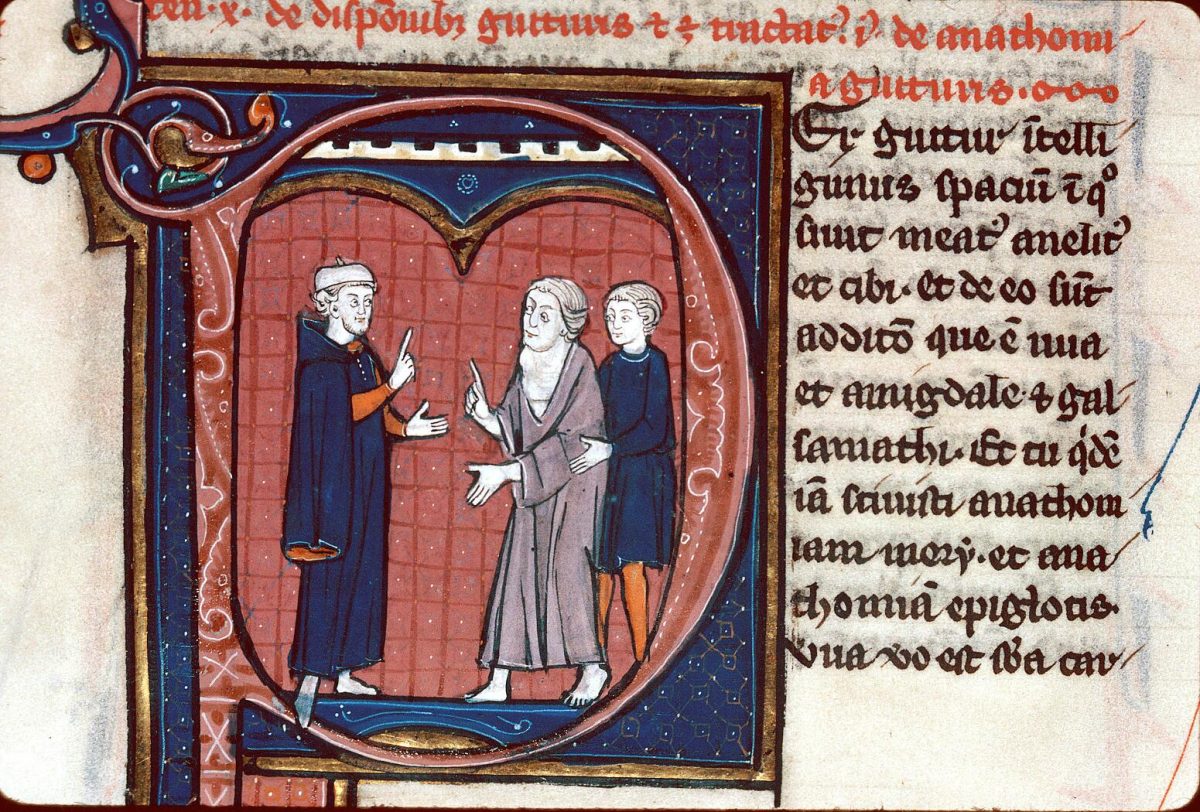 fen .x. de dispōnib; gutturis ⁊ ē tractat⁹. i⁹ de anathomi
a gutturis.
Er guttur ītelli
gimus spaciū ī qͦ
sunt meat⁹ anelit⁹
et cibi. et de eo sūt
additō que ē uua
et amigdale ⁊ gal
samathi. Et tu q̇dē
iā sciuisti anathom
iam mery. et ana
thomiā epiglotis.
vua v̊o est sb̄a car